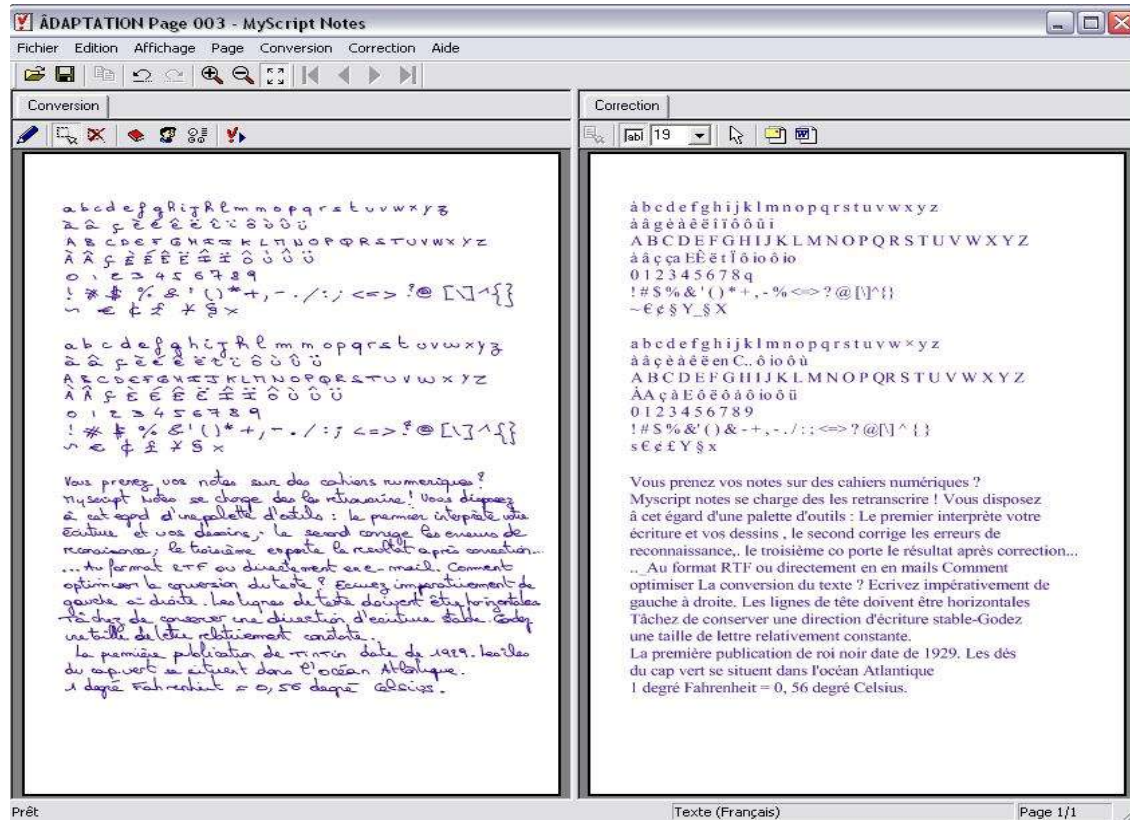 ÂDAPTATION Page 003 - MyScript Notes
Fichier Edition Affichage Page Conversion Correction Aide
Conversion
a b c d e f g h i j k l m n o p q r s t u v w x y z
à â ç è é ê ë î ï ô ò û ü
A B C D E F G H I J K L M N O P Q R S T U V W X Y Z
À Â Ç È É Ê Ë Î Ï Ô Ù Û Ü
0 1 2 3 4 5 6 7 8 9
! # $ % & ' ( ) * + , - . / : ; < = > ? @ [ \ ] ^ { }
~ € ¢ £ ¥ § x
a b c d e f g h i j k l m n o p q r s t u v w x y z
à â ç è é ê ë î ï ô ù û ü
A B C D E F G H I J K L M N O P Q R S T U V W X Y Z
À Â Ç È É Ê Ë Î Ï Ô Ù Û Ü
0 1 2 3 4 5 6 7 8 9
! # $ % & ' ( ) * + , - . / : ; < = > ? @ [ \ ] ^ { }
~ € ¢ £ ¥ § x
Vous prenez vos notes sur des cahiers numeriques ?
Myscript Notes se charge des les retranscrire ! Vous disposez
à cet egard d'une palette d'outils : le premier interprète votre
écriture et vos dessins, le second corrige les erreurs de
reconnaissance, le troisième exporte le resultat après correction...
... Au format RTF ou directement en e-mail. Comment
optimiser la conversion du texte ? Ecrivez imperativement de
gauche à droite. Les lignes de texte doivent être horizontales
Tâchez de conserver une direction d'écriture stable. Gardez
une taille de lettre relativement constante.
La première publication de TINTIN date de 1929. Les îles
du cap vert se situent dans l'océan Atlantique.
1 degré Fahrenheit = 0,56 degré Celsius.
Correction
19
à b c d e f g h i j k l m n o p q r s t u v w x y z
à â g è à è ë î ï ô ô û i
A B C D E F G H I J K L M N O P Q R S T U V W X Y Z
à â ç ça E Ê ë t Ï ô io ô io
0 1 2 3 4 5 6 7 8 q
! # $ % & ' ( ) * + , - % <=> ? @ [\]^{}
~ € ¢ § Y_§ X
a b c d e f g h i j k l m n o p q r s t u v × y z
à â ç è à é ë en C.. ô io ô ù
A B C D E F G H I J K L M N O P QR S T U V W X Y Z
ÀA ç à E ô ë ô à ô io ô ü
0 1 2 3 4 5 6 7 8 9
! # $ % & ' ( ) & - + , - . / : ; <=> ? @[\] ^ { }
s € ¢ £ Y § x
Vous prenez vos notes sur des cahiers numériques ?
Myscript notes se charge des les retranscrire ! Vous disposez
â cet égard d'une palette d'outils : Le premier interprète votre
écriture et vos dessins , le second corrige les erreurs de
reconnaissance,. le troisième co porte le résultat après correction...
.._Au format RTF ou directement en en mails Comment
optimiser La conversion du texte ? Ecrivez impérativement de
gauche à droite. Les lignes de tête doivent être horizontales
Tâchez de conserver une direction d'écriture stable-Godez
une taille de lettre relativement constante.
La première publication de roi noir date de 1929. Les dés
du cap vert se situent dans l'océan Atlantique
1 degré Fahrenheit = 0, 56 degré Celsius.
Prêt
Texte (Français)
Page 1/1